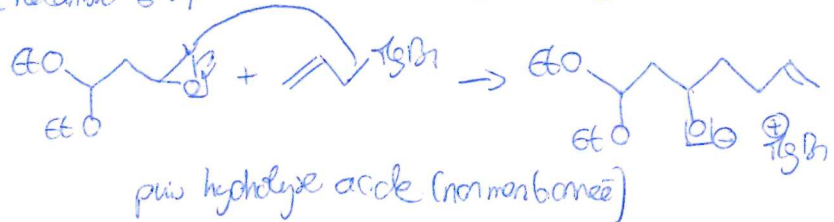 EtO
EtO
O
+
MgBr
→
EtO
EtO
O ⊖
⊕
MgBr
puis hydrolyse acide (non mentionnée)